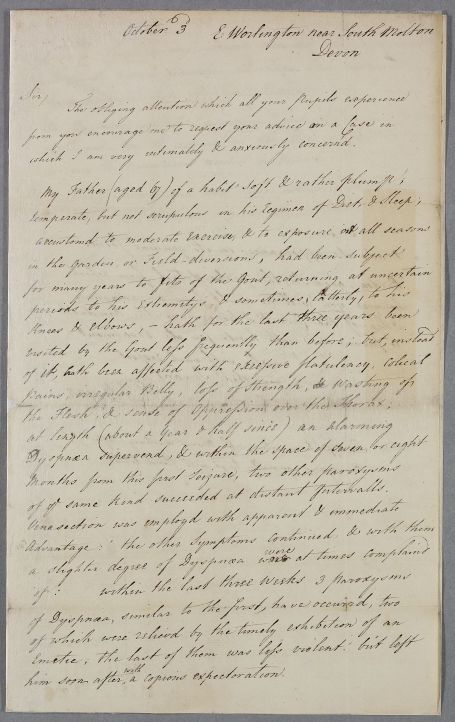 October 3 E Worlington near South Molton
Devon
Sir,
The obliging attention which all your Pupils experience
from you encourage me to request your advice on a Case in
which I am very intimately & anxiously concernd.
My Father (aged 67) of a habit soft & rather plump;
temperate, but not scrupulous in his Regimen of Diet, & Sleep;
accustomd to moderate Exercise, & to exposure, at all seasons
in the Garden, or Field-diversions, had been subject
for many years to fits of the Gout, returning at uncertain
periods to his Extremitys, & sometimes, latterly, to his
Knees & elbows, – hath for the last three years been
visited by the Gout less frequently than before; but, instead
of it, hath been affected with excessive flatulency, Colical
pains, irregular Belly, loss of Strength, & Washing of
the Flesh, & sense of Oppression over the Thorax.
at length (about a year & half since) an alarming
Dyspnœa supervend, & within the space of seven or eight
Months from this first Seizure, two other paroxysms
of yͤ same kind succeeded at distant Intervalls.
Venæsection was employd with apparent & immediate
Advantage: the other Symptoms continued, & with them
a slighter degree of Dyspnœa were at times complaind
of: within the last three Weeks 3 paroxysms
of Dyspnœa, similar to the first, have occurred, two
of which were relievd by the timely exhibition of an
Emetic; the last of them was less violent: but left
him soon after, with a copious expectoration.